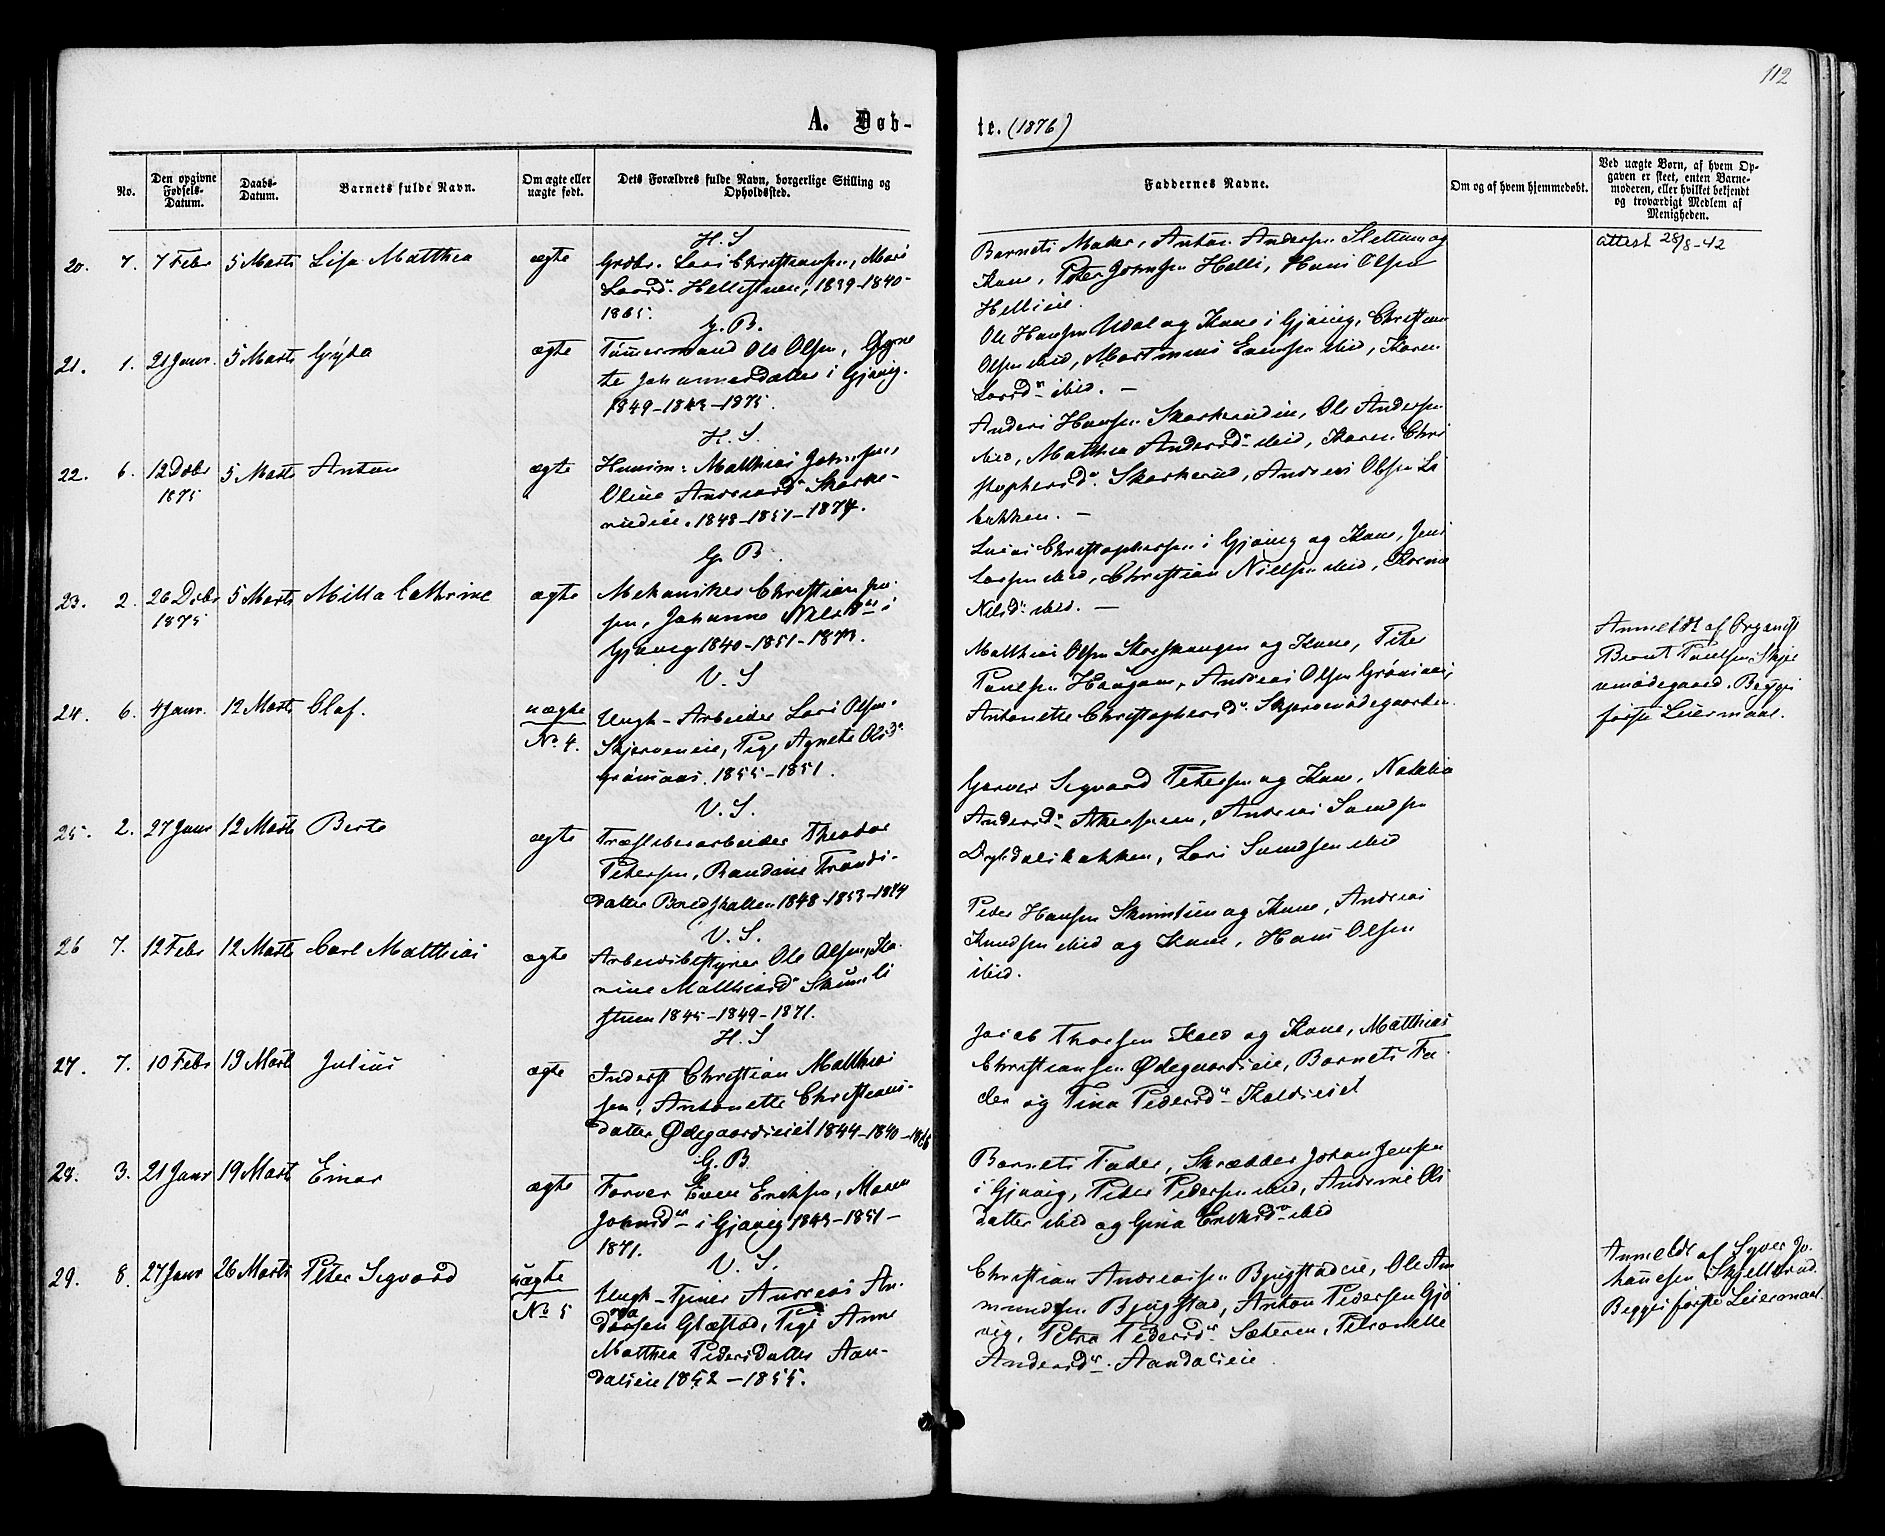 112
A. Døb-
te. (1876)
No.
Den opgivne Fødsels-Datum.
Daabs-Datum.
Barnets fulde Navn.
Om ægte eller uægte født.
Dets Forældres fulde Navn, borgerlige Stilling og Opholdssted.
Faddernes Navne.
Om og af hvem hjemmedøbt.
Ved uægte Børn, af hvem Opgaven er skeet, enten Barnemoderen, eller hvilket bekjendt og troværdigt Medlem af Menigheden.
20. 7. 7 Febr 5 Marts Lisa Matthea ægte
H. S
Grdbr. Lars Christiansen, Mari
Larsd. Hellistuen, 1839-1840-
1865.
Barnets Moder, Anton Andersen Slettum og
Kone, Peter Johnsen Helli, Hans Olsen
Hellieie.
attest 28/8-42
21. 1. 21 Janr. 5 Marts Gryda ægte
G. B.
Tømermand Ole Olsen, Agne
te Johannesdatter i Gjøvig.
1849-1843-1875.
Ole Hansen Udal og Kone i Gjøvig, Christian
Olsen ibid, Martinus Evensen ibid, Karen
Larsd. ibid. —
22. 6. 12 Dcbr 1875 5 Marts Anton ægte
H. S.
Huusm: Matthias Johnsen,
Oline Andersd. Skarke-
rudeie. 1848-1851-1874.
Anders Hansen Skarkerudeie, Ole Andersen
ibid, Matthea Andersd. ibid, Karen Chri
stophersd. Skarkerud, Andreas Olsen Li
bakken. —
23. 2. 26 Dcbr 1875 5 Marts Milla Cathrine ægte
G. B.
Mekaniker Christian Jen-
sen, Johanne Nilsd. i
Gjøvig 1840-1851-1873.
Lars Christophersen i Gjøvig og Kone, Jens
Larsen ibid, Christian Nilsen ibid, Karine
Nilsd. ibid. —
24. 6. 4 Janr. 12 Marts Olaf. uægte No. 4.
V. S
Ungk.-Arbeider Lars Olsen
Skjerveneie, Pige Agnete Olsd.
Grønaas. 1855-1851.
Matthias Olsen Storskaugen og Kone, Peter
Paulsen Haugom, Andreas Olsen Grønaas,
Antonette Christophersd. Skjermødegaarden.
Anmeldt af Organist
Bernt Paulsen Skjer
vmødegaard. Begges
første Leiermaal.
25. 2. 27 Janr 12 Marts Berte ægte
V. S.
Træsliberarbeider Theodor
Petersen, Randine Frands-
datter Bredskallen 1848-1853-1874
Garver Sigvard Petersen og Kone, Nathalia
Andersd. Andreas Svendsen
Lars Svendsen ibid
26 7. 12 Febr 12 Marts Carl Matthias ægte
V. S.
Arbeidsbestyrer Ole Olsen, Ka-
rine Matthiasd. Skumsli
stuen 1845-1849-1871.
Peder Hansen Skumslien og Kone, Andreas
Knudsen ibid og Kone, Hans Olsen
ibid.
27. 7. 10 Febr 19 Marts Julius ægte
H. S
Inderst Christian Matthias
sen, Antonette Christians-
datter Ødegaardseiet 1844-1840-1868
Jacob Thorsen Kald og Kone, Matthias
Christiansen Ødegaardseie, Barnets Fa-
der og Tina Pedersd. Kaldseiet
28. 3. 21 Janr 19 Marts Einar ægte
G. B
Farver Even Eriksen, Maren
Johnsd. i Gjøvig 1843-1851-
1871.
Barnets Fader, Skrædder Johan Jensen
i Gjøvig, Peter Pedersen ibid, Andrine Ols
datter ibid og Gina Eriksd. ibid
29. 8. 27 Janr 26 Marts Peter Sigvard uægte No 5
V. S.
Ungk-Tjener Andreas An-
dersen Glæstad, Pige Anne
Matthea Pedersdatter Aan-
dalseie 1852-1855.
Christian Andreassen Bjugstadeie, Ole Am
mundsen Bjugstad, Anton Pedersen Gjø
vig, Petra Pedersd. Sæteren, Petronelle
Andersd. Aandalseie.
Anmeldt af Syver Jo-
hannesen Skjellerud
Begges første Leiermaal.